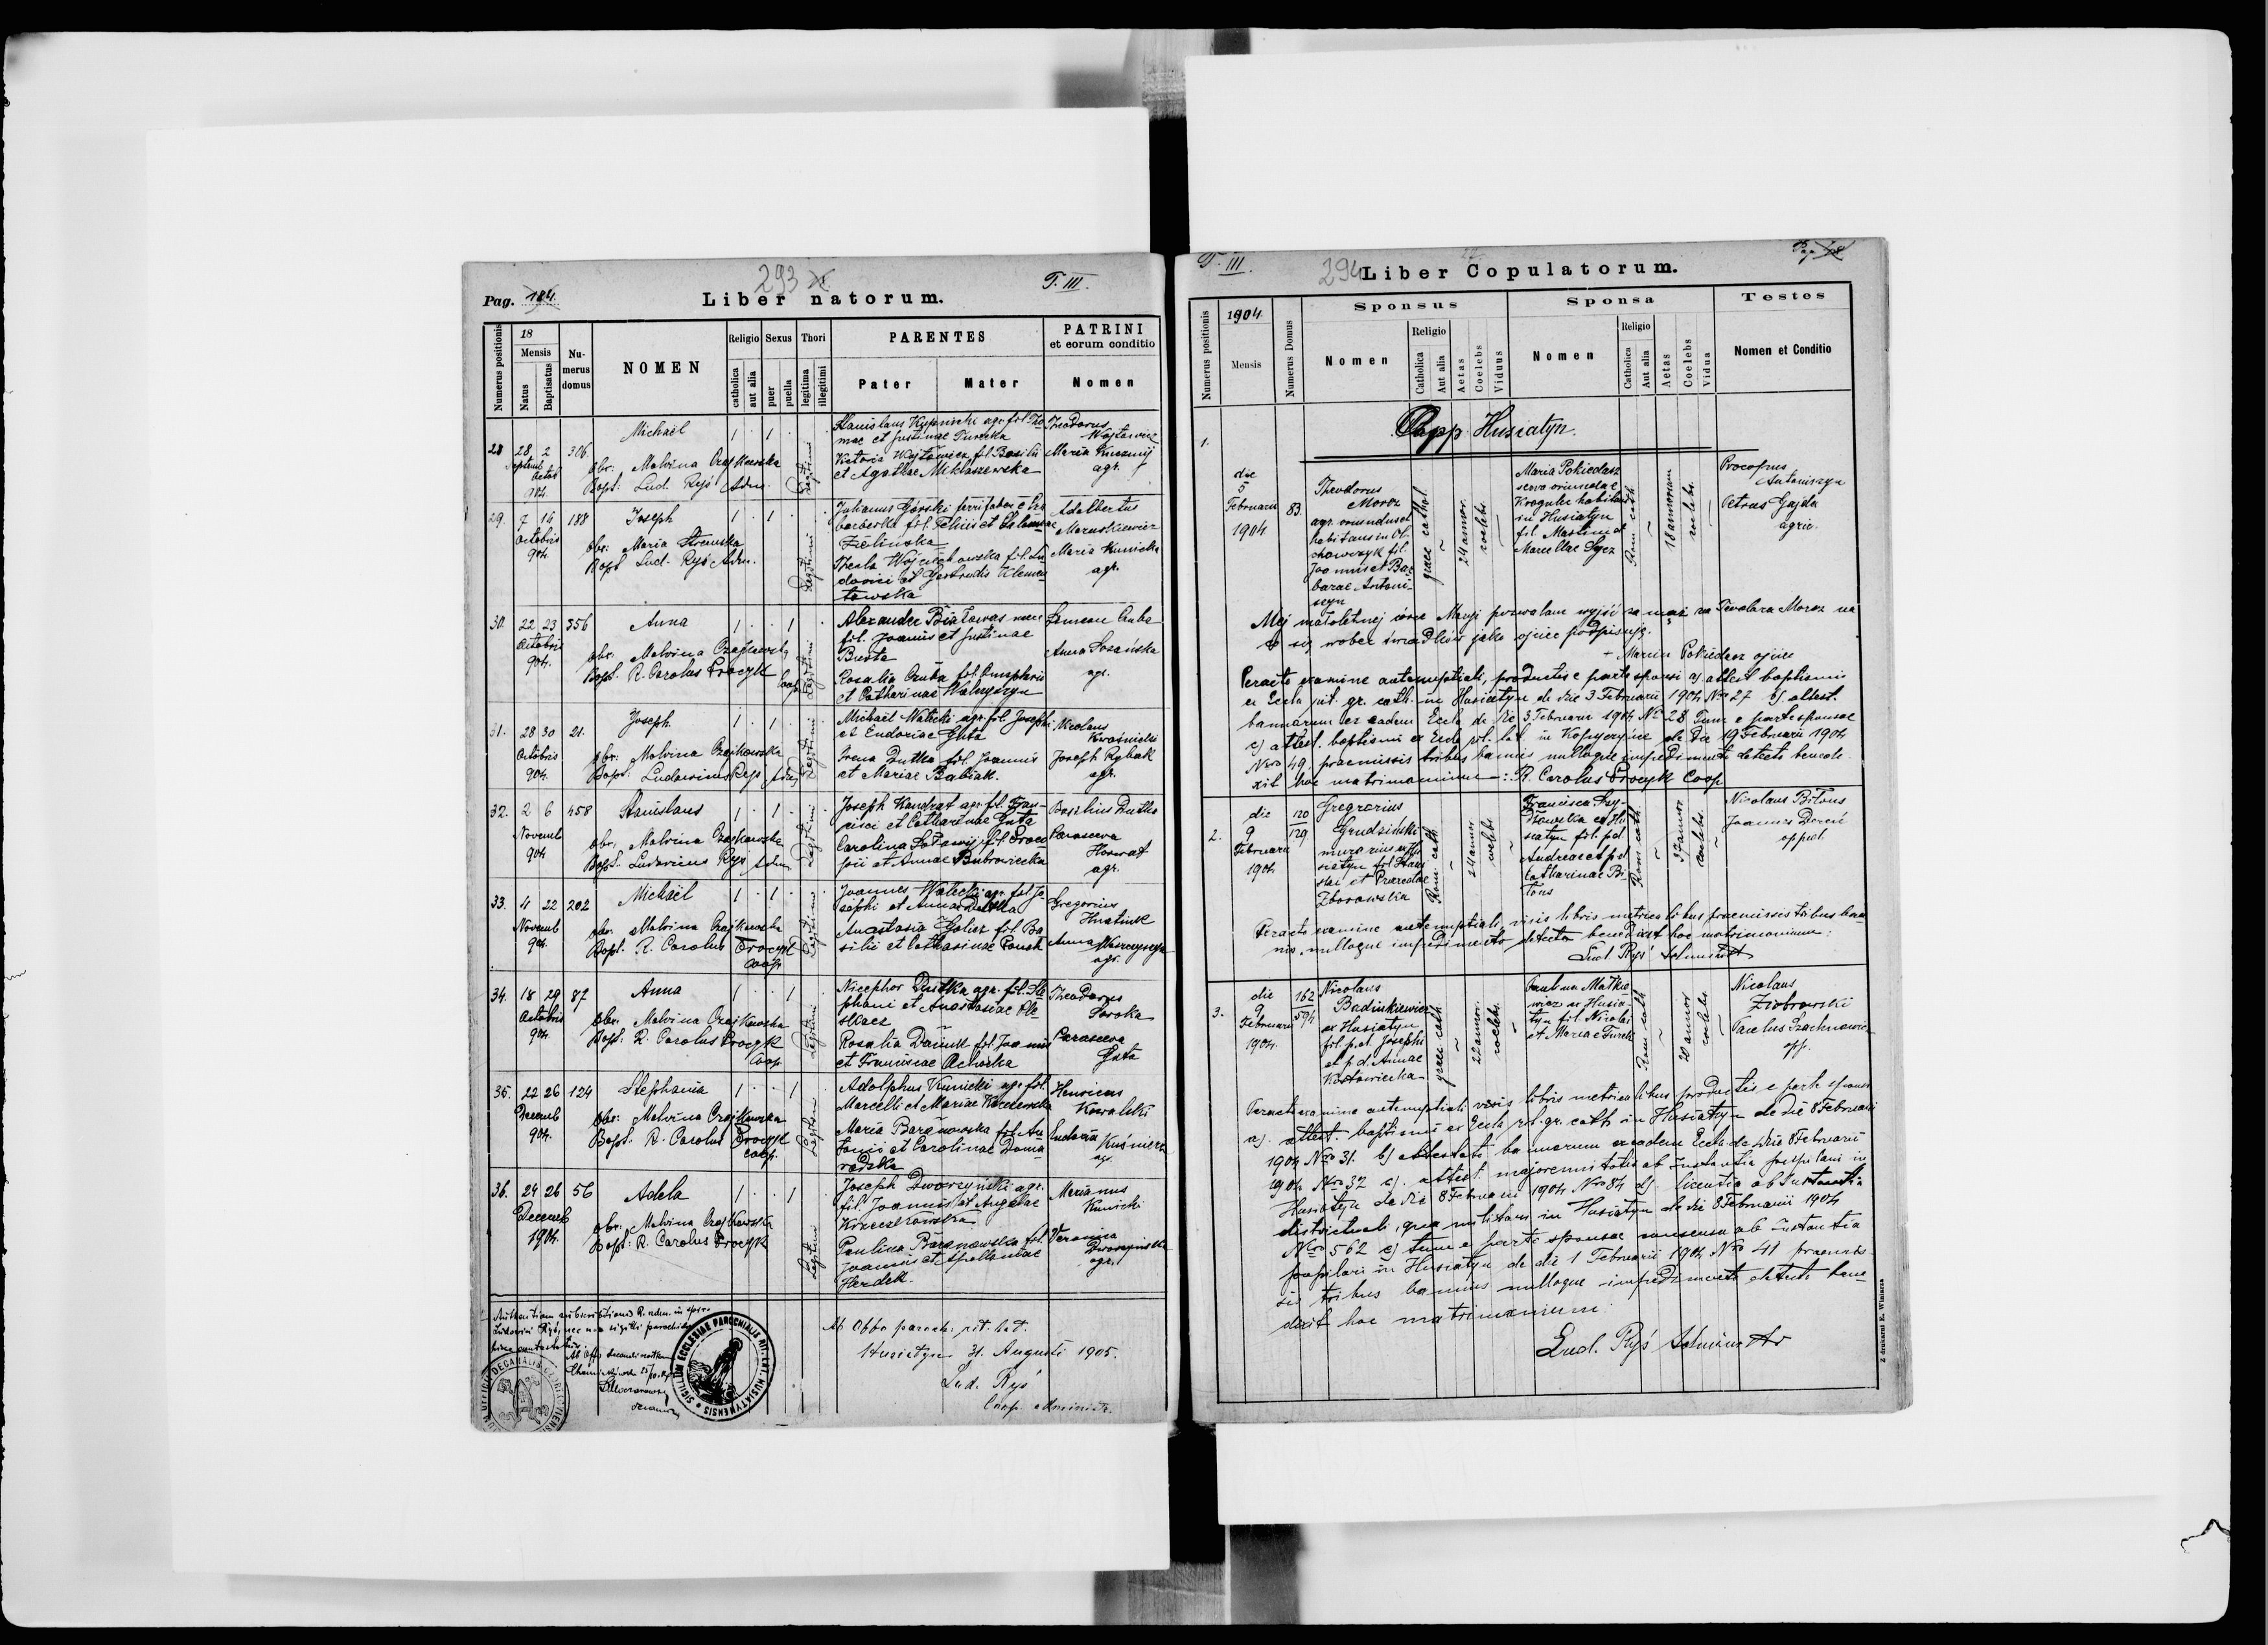 Pag. 184.
293
T. III.
Liber natorum.
Numerus positionis
18
Mensis
Natus
Baptisatus
Nu-
merus
domus
NOMEN
Religio
catholica
aut alia
Sexus
puer
puella
Thori
legitima
illegitimi
PARENTES
Pater
Mater
PATRINI
et eorum conditio
Nomen
28
28 2
Septemb
Octob
904
306
Michaël
obs: Malvina Czajkowska
Bapt: Lud. Ryś Adm.
1 1
Legitimi
Stanislaus Kupnicki agr. fil. Tho
mae et Justinae Turecka
Wojtowicz fil. Basilii
et Agathae Miklaszewska
Theodorus
Wojtowicz
Maria
agr.
29.
7 16
Octobris
904
188
Joseph
obs: Maria
Bapt Lud. Ryś Adm.
1 1
Legitimi
Julianus Górski ferrifaber e
fil. Felicis et Salomeae
Zielińska
Thecla Wojciechowska fil. Lu
dovici et Gertrudis Klemen
towska
Adalbertus
Maruszkiewicz
Maria Kunicka
agr.
30.
22 23
Octobris
904.
356
Anna
obs. Malvina Czajkowska
Bapt. R. Carolus Procyk
Coop
1 1
Legitimi
Alexander
fil. Joannis et Justinae
Rosalia Czuba fil. Onuphrii
et Catharinae
Simeon Czuba
Anna
agr.
31.
28 30
Octobris
904.
21.
Joseph
obs: Malvina Czajkowska
Bapt: Ludovicus Ryś Adm
1 1
Legitimi
Michaël Walecki agr. fil. Josephi
et Eudoxiae Guta
Irena Dutka fil. Joannis
et Mariae Babiak.
Nicolaus
Kwaśnicki
Joseph Rybak
agr.
32.
2 6
Novemb
904
458
Stanislaus
obs. Malvina Czajkowska
Bapt. Ludovicus Ryś Adm
1 1
Legitimi
Joseph Kondrat agr. fil. Fran-
cisci et Catharinae Guta
Carolina fil. Proco
pii et Annae Bubrowiecka
Basilius Dutka
Parasceva
Horwat
agr.
33.
4 22
Novemb
904
202
Michaël
obs. Malvina Czajkowska
Bapt. R. Carolus Procyk
Coop.
1 1
Legitimi
Joannes Walecki agr. fil. Jo
sephi et Annae Dutka
Anastasia fil. Ba
silii et Catharinae
Gregorius
Hnatiuk
Anna
agr.
34.
18 29
Octobris
904
87
Anna
obs. Malvina Czajkowska
Bapt. R. Carolus Procyk
Coop.
1 1
Legitimi
Nicephor Dutka agr. fil. Ste
phani et Anastasiae
Rosalia fil. Joannis
et Franciscae
Theodorus
Soroka
Parasceva
Guta
35.
22 26
Decemb
904.
124
Stephania
obs: Malvina Czajkowska
Bapt. R. Carolus Procyk
coop.
1 1
Adolphus Kunicki agr. fil.
Marcelli et Mariae
Maria Baranowska fil. An
tonii et Carolinae Doma
radzka
Henricus
Kowalski
Eudoxia
Kuśnierz
ag.
36.
24 26
Decemb
1904.
56
Adela
obs: Malvina Czajkowska
Bapt: R. Carolus Procyk
1 1
Legitimi
Joseph Dworzyński agr.
fil. Joannis et Angelae
Krzeczkowska
Paulina Baranowska fil.
Joannis et Apolloniae
Herdek.
Marianus
Kunicki
Veronica
Dworzyńska
agr.
SIGILLUM ECCLESIAE PAROCHIALIS RIT. LAT. HUSIATYNENSIS
Ab Offo paroch: rit. lat.
Husiatyn 31. Augusti 1905.
Lud. Ryś
Coop. administr.
T. III.
294
Liber Copulatorum.
Numerus positionis
1904.
Mensis
Numerus Domus
Sponsus
Nomen
Religio
Catholica
Aut alia
Aetas
Coelebs
Viduus
Sponsa
Nomen
Religio
Catholica
Aut alia
Aetas
Coelebs
Vidua
Testes
Nomen et Conditio
Opp. Husiatyn.
1.
die
5
Februarii
1904
83.
Theodorus
Moroz
agr. oriundus et
habitans in Ol-
chowczyk fil.
Joannis et Bar
barae Antoni-
szyn
graec cathol
24 annor.
coelebs.
Maria Pokiedasz
serva oriunda e
Krogulec habitans
in Husiatyn
fil. Martini et
Marcellae
Rom. cath
18 annorum
coelebs.
Procopius
Antoniszyn
Petrus Gajda
agric.
Mej małoletnej córce Maryi pozwalam wyjść za mąż za Teodora Moroz na
co się wobec świadków jako ojciec podpisuję.
+ Marcin Pokiedasz ojciec
Peracto examine antenuptiali, productis e parte sponsi a) attest baptismi
ex Eccla rit. gr. cath. in Husiatyn de die 3 Februarii 1904 Nro 27 b) attest.
bannorum ex eadem Eccla de die 3 Februarii 1904 No 28 Tum e parte sponsae
c) attest. baptismi ex Eccla rit. lat in Kopyczyńce de die 19 Februarii 1904
Nro 49, praemissis tribus bannis nulloque impedimento detecto benedi
xit hoc matrimonium: R. Carolus Procyk Coop
2.
die
9
Februarii
1904
120
129
Gregorius
Grudziński
murarius ex Hu
siatyn fil. Stani
slai et Praxedae
Zborowska
Rom. cath
24 annor
coelebs
Francisca
ex Hu
siatyn fil. p.d.
Andreae et p.d.
Catharinae Bi
tous
Rom cath
37 annor
coelebs.
Nicolaus Bitous
Joannes Dereń
oppid.
Peracto examine antenuptiali, visis libris metricalibus praemissis tribus ban
nis, nulloque impedimento detecto benedixit hoc matrimonium:
Lud. Ryś Administr
3.
die
9
Februarii
1904.
162
594
Nicolaus
Bedinkiewicz
ex Husiatyn
fil. p.d. Josephi
et p.d. Annae
graec cath
22 annor.
coelebs.
Paulina Matko
wicz ex Husia-
tyn fil. Nicolai
et Mariae Turek
Rom cath
20 annor
coelebs
Nicolaus
Ziobrowski
Paulus Szachnowicz
opp.
Peracto examine antenuptiali visis libris metricalibus productis e parte sponsi
a). attest. baptismi ex Eccla rit. gr. cath in Husiatyn de die 8 Februarii
1904 Nro 31. b) attestati bannorum ex eadem Eccla de die 8 Februarii
1904 Nro 32 c). attest. majorennitatis ab Instantia pupilari in
Husiatyn de die 8 Februarii 1904 Nro 84 d). licentia ab Instantia
districtuali, qua militari in Husiatyn de die 8 Februarii 1904
Nro 562 e) tum e parte sponsae consensu ab Instantia
pupilari in Husiatyn de die 1 Februarii 1904 Nro 41 praemis-
sis tribus bannis nulloque impedimento detecto bene
dixit hoc matrimonium:
Lud. Ryś Administr
Z drukarni E. Winiarza